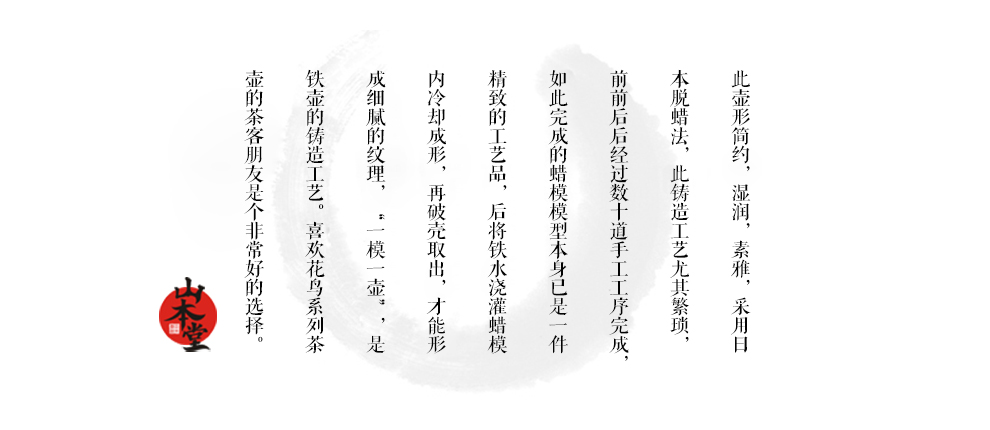 此壶形简约，湿润，素雅，采用日
本脱蜡法，此铸造工艺尤其繁琐，
前前后后经过数十道手工工序完成，
如此完成的蜡模模型本身已是一件
精致的工艺品，后将铁水浇灌蜡模
内冷却成形，再破壳取出，才能形
成细腻的纹理，“一模一壶”，是
铁壶的铸造工艺。喜欢花鸟系列茶
壶的茶客朋友是个非常好的选择。
山本堂